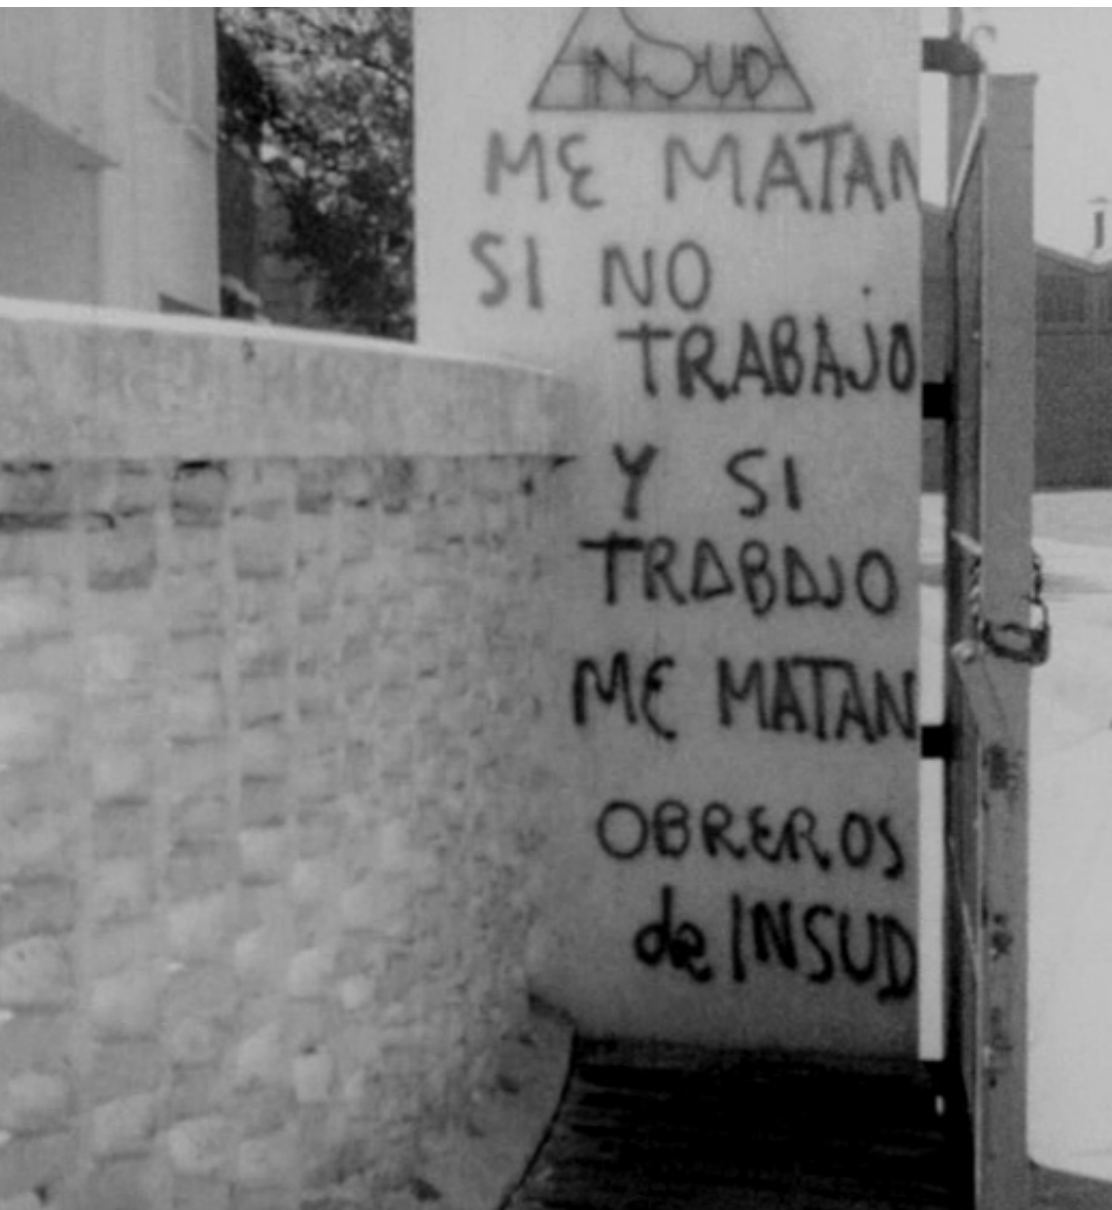 INSUD
ME MATAN
SI NO
TRABAJO
Y SI
TRABAJO
ME MATAN
OBREROS
de INSUD